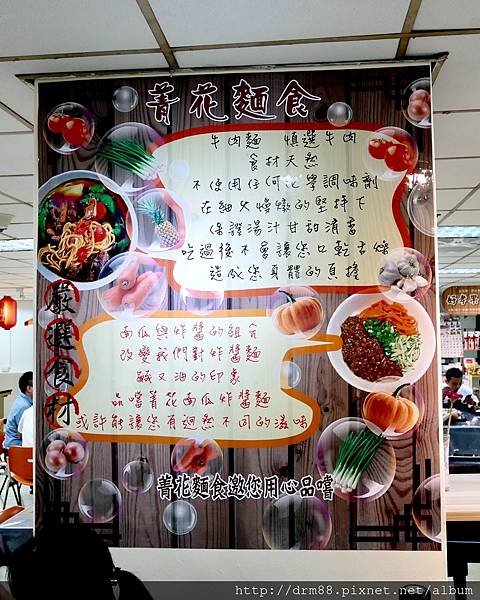 菁花麵食
牛肉麵 慎選牛肉
食材天然
不使用任何化學調味劑
在細火慢燉的堅持下
保證湯汁甘甜清香
吃過後不會讓您口乾舌燥
造成您身體的負擔
嚴選食材
南瓜與炸醬的組合
改變我們對炸醬麵
鹹又油的印象
品嚐菁花南瓜炸醬麵
或許能讓您有迥然不同的滋味
菁花麵食邀您用心品嚐
http://drm88.pixnet.net/album